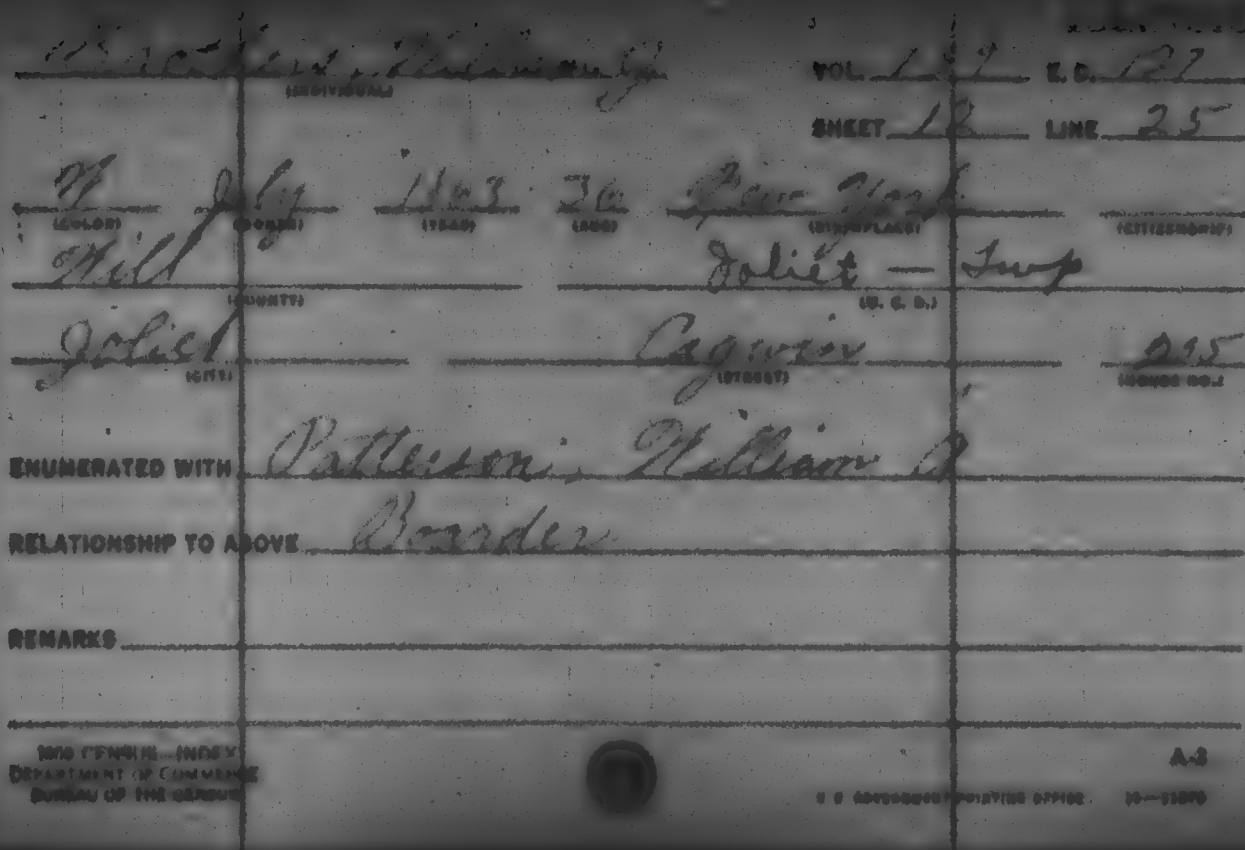 J
VOL. E. D.
(INDIVIDUAL)
SHEET 12 LINE 25
W July 36 New York
(COLOR) (MONTH) (YEAR) (AGE) (BIRTHPLACE) (CITIZENSHIP)
Will Joliet — Twp
(COUNTY) (M. C. D.)
Joliet Cagwin
(CITY) (STREET) (HOUSE NO.)
ENUMERATED WITH Patterson, William A
RELATIONSHIP TO ABOVE Boarder
REMARKS
CENSUS—INDEX
DEPARTMENT OF COMMERCE
BUREAU OF THE CENSUS
A-3
U. S. GOVERNMENT PRINTING OFFICE